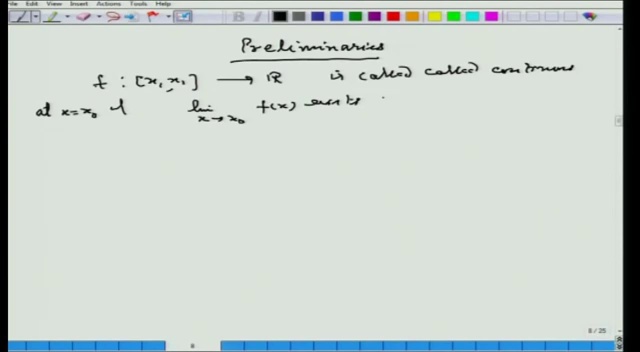 File Edit View Insert Actions Tools Help
Preliminaries
f : [x₁, x₁] → ℝ is called called continuous
at x=x₀ if lim x→x₀ f(x) exists
8 / 25
8